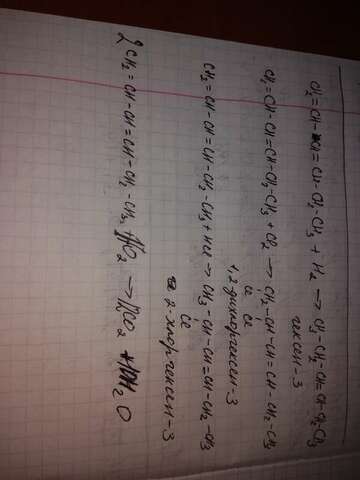 CH₂=CH-CH=CH-CH₂-CH₃ + H₂ → CH₃-CH₂-CH=CH-CH₂CH₃
гексен-3
CH₂=CH-CH=CH-CH₂-CH₃ + Cl₂ → CH₂-CH-CH=CH-CH₂-CH₃
Cl Cl
1,2-дихлоргексен-3
CH₂=CH-CH=CH-CH₂-CH₃ + HCl → CH₃-CH-CH=CH-CH₂-CH₃
Cl
2-хлоргексен-3
2CH₂=CH-CH=CH-CH₂-CH₃ O₂ → CO₂ + H₂O